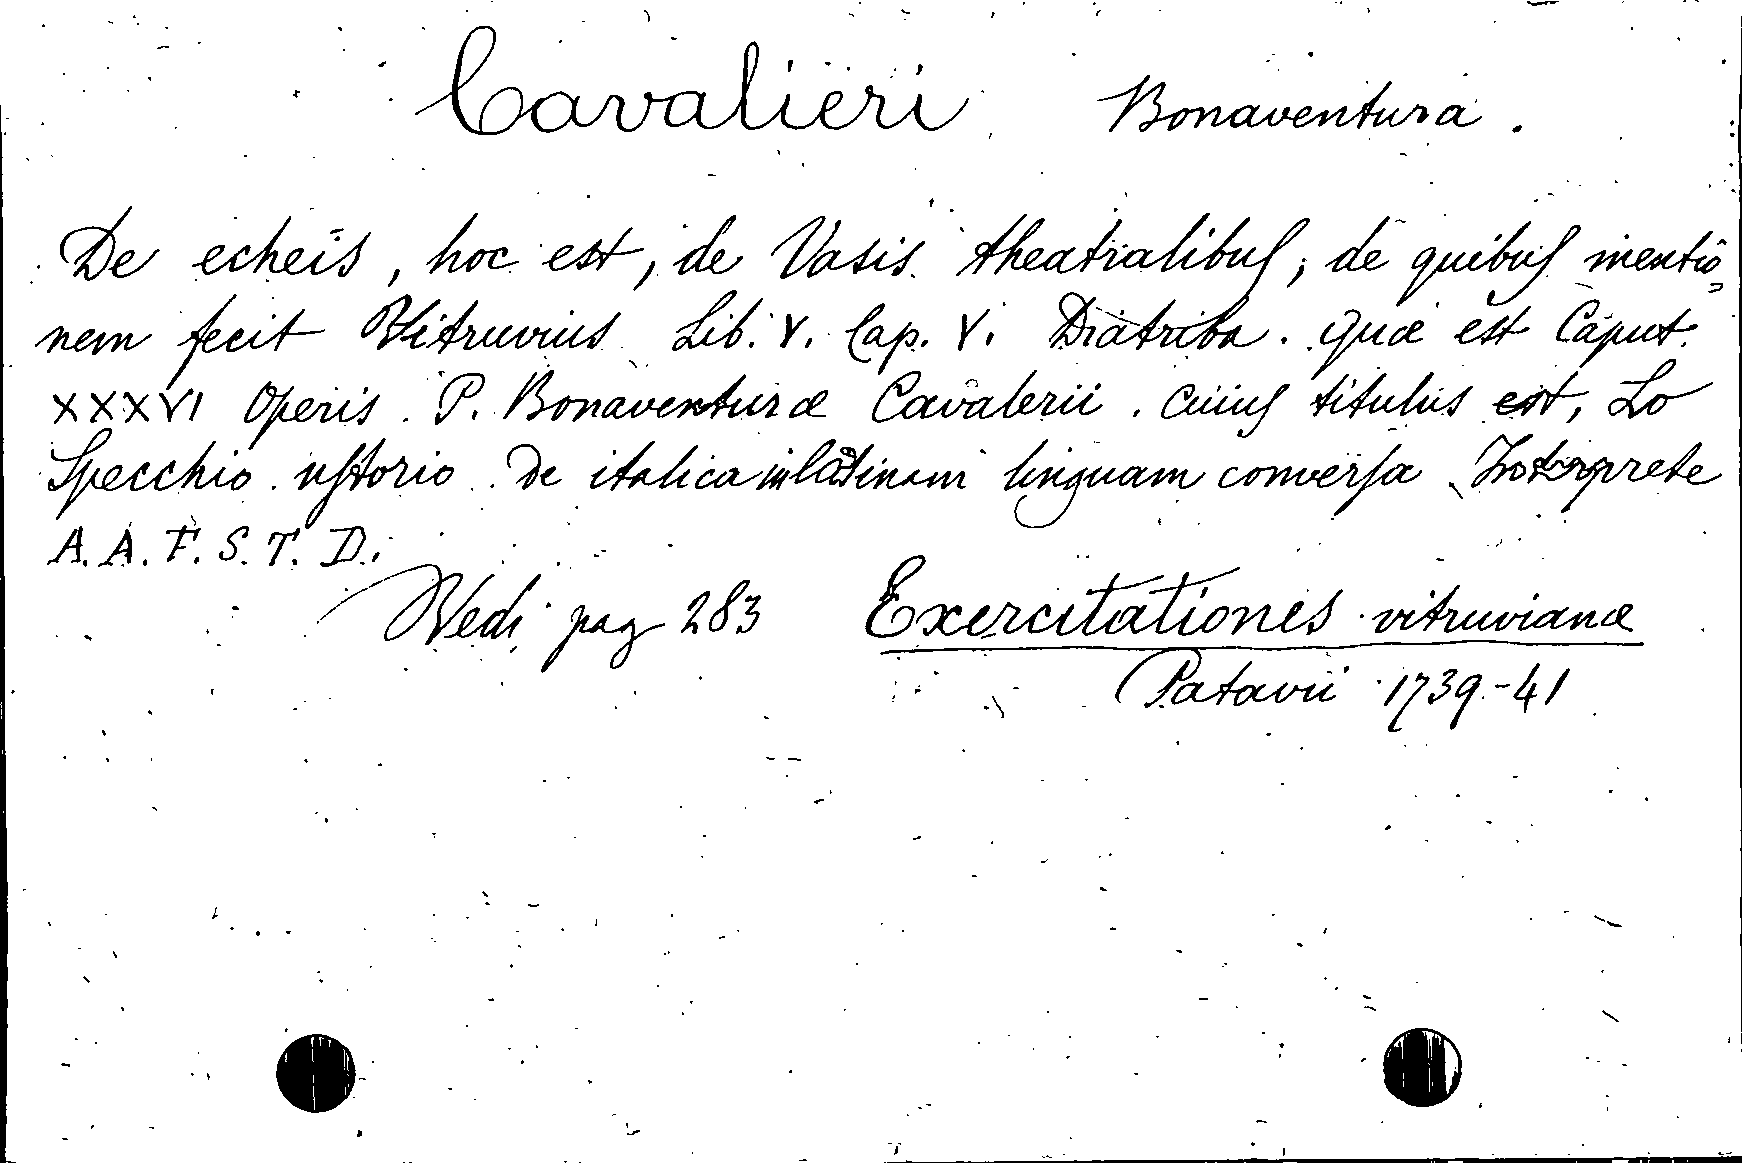 Cavalieri Bonaventura.
De echeis, hoc est, de Vasis theatralibus, de quibus mentio=
nem fecit Vitruvius Lib. V. Cap. V. Diatriba. Quæ est Caput
XXXVI Operis P. Bonaventuræ Cavalerii. Cuius titulus est, Lo
Specchio ustorio De italica in latinam linguam conversa Interprete
A. A. F. S. T. D.
Vedi pag 283 Exercitationes vitruvianæ
Patavii 1739-41